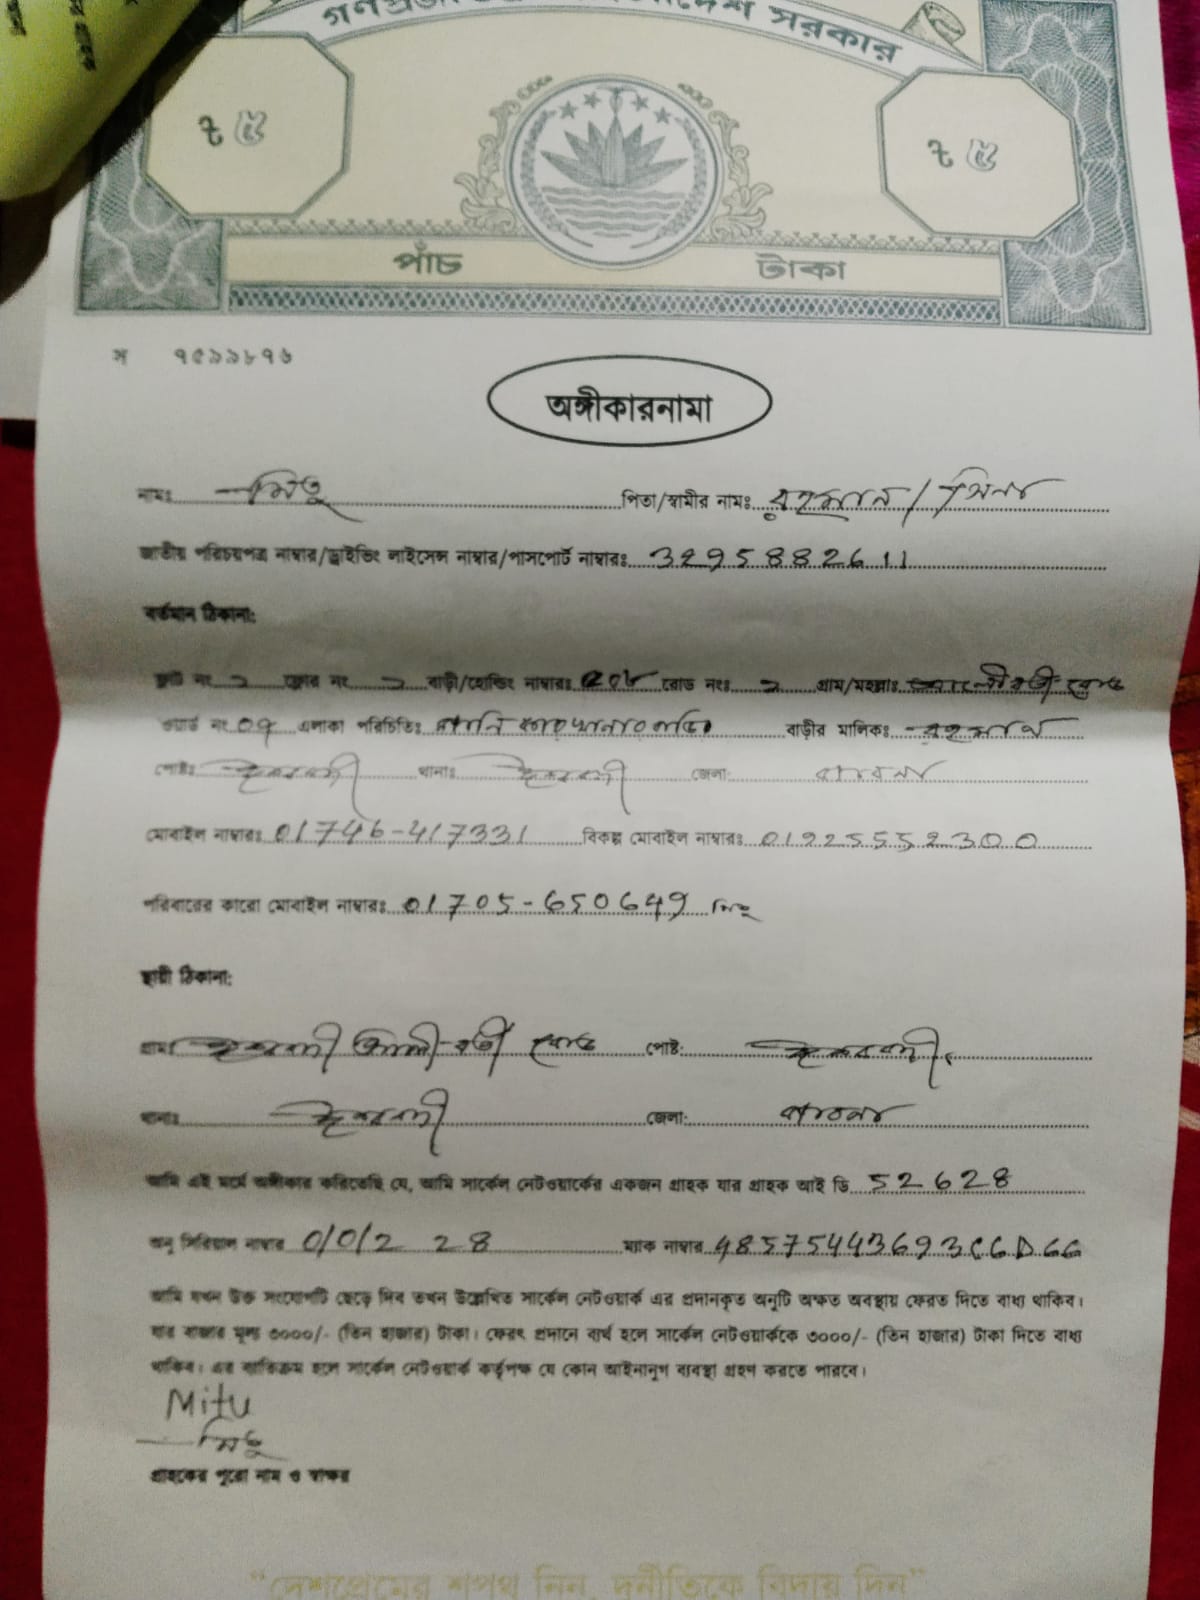 গণপ্রজাতন্ত্রী বাংলাদেশ সরকার
৳ ৫ ৳ ৫
পাঁচ টাকা
স ৭৫৯৯৮৭৬
অঙ্গীকারনামা
নামঃ মিতু পিতা/স্বামীর নামঃ রহমান /
জাতীয় পরিচয়পত্র নাম্বার/ড্রাইভিং লাইসেন্স নাম্বার/পাসপোর্ট নাম্বারঃ 3295882611
বর্তমান ঠিকানা:
ফ্লাট নং ফ্লোর নং বাড়ী/হোল্ডিং নাম্বারঃ রোড নংঃ গ্রাম/মহল্লাঃ রোড
ওয়ার্ড নং 09 এলাকা পরিচিতিঃ বাড়ীর মালিকঃ রহমান
পোষ্টঃ ঈশ্বরদী থানাঃ ঈশ্বরদী জেলা: পাবনা
মোবাইল নাম্বারঃ 01746-417331 বিকল্প মোবাইল নাম্বারঃ 01925552300
পরিবারের কারো মোবাইল নাম্বারঃ 01705-650649 মিতু
স্থায়ী ঠিকানা:
গ্রামঃ ঈশ্বরদী রোড পোষ্ট: ঈশ্বরদী
থানাঃ ঈশ্বরদী জেলা: পাবনা
আমি এই মর্মে অঙ্গীকার করিতেছি যে, আমি সার্কেল নেটওয়ার্কের একজন গ্রাহক যার গ্রাহক আই ডি 52628
অনু সিরিয়াল নাম্বার 0/0/2 28 ম্যাক নাম্বার 48575443693C6D66
আমি যখন উক্ত সংযোগটি ছেড়ে দিব তখন উল্লেখিত সার্কেল নেটওয়ার্ক এর প্রদানকৃত অনুটি অক্ষত অবস্থায় ফেরত দিতে বাধ্য থাকিব।
যার বাজার মূল্য ৩০০০/- (তিন হাজার) টাকা। ফেরৎ প্রদানে ব্যর্থ হলে সার্কেল নেটওয়ার্ককে ৩০০০/- (তিন হাজার) টাকা দিতে বাধ্য
থাকিব। এর ব্যতিক্রম হলে সার্কেল নেটওয়ার্ক কর্তৃপক্ষ যে কোন আইনানুগ ব্যবস্থা গ্রহণ করতে পারবে।
Mitu
মিতু
গ্রাহকের পুরো নাম ও স্বাক্ষর
"দেশপ্রেমের শপথ নিন, দুর্নীতিকে বিদায় দিন"